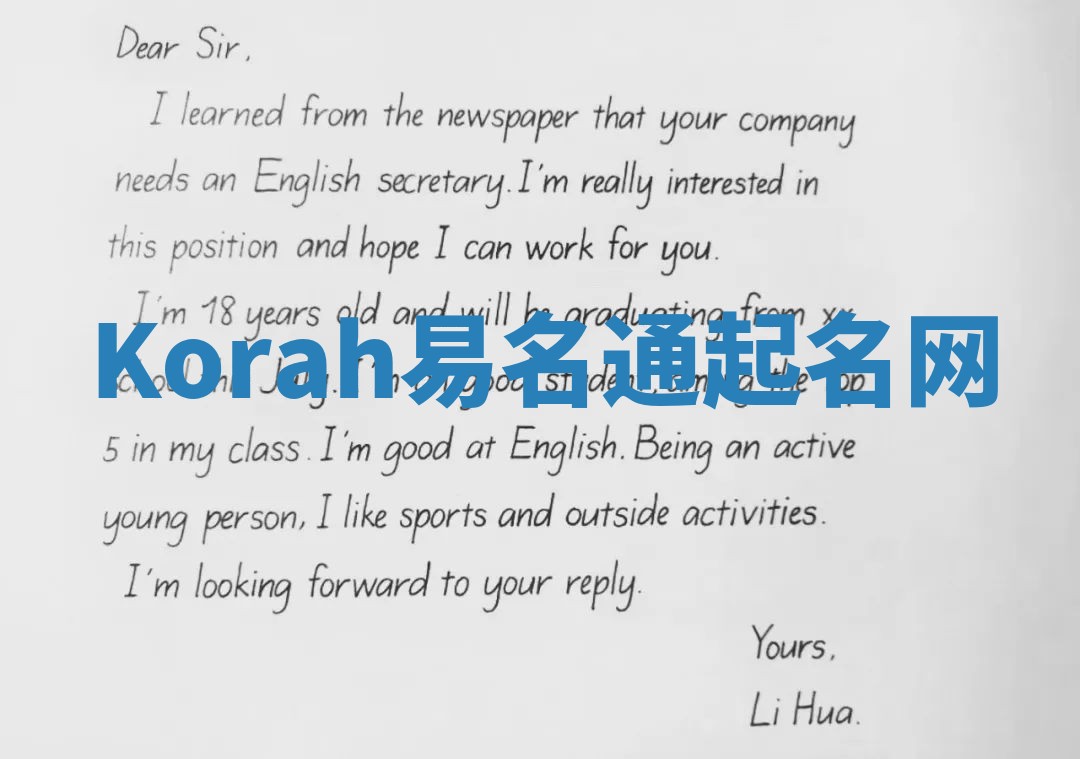 Dear Sir,
I learned from the newspaper that your company
needs an English secretary. I'm really interested in
this position and hope I can work for you.
I'm 18 years old and will be graduating from xx
Korah易名通起名网
school this July. I'm a good student, among the top
5 in my class. I'm good at English. Being an active
young person, I like sports and outside activities.
I'm looking forward to your reply.
Yours,
Li Hua.